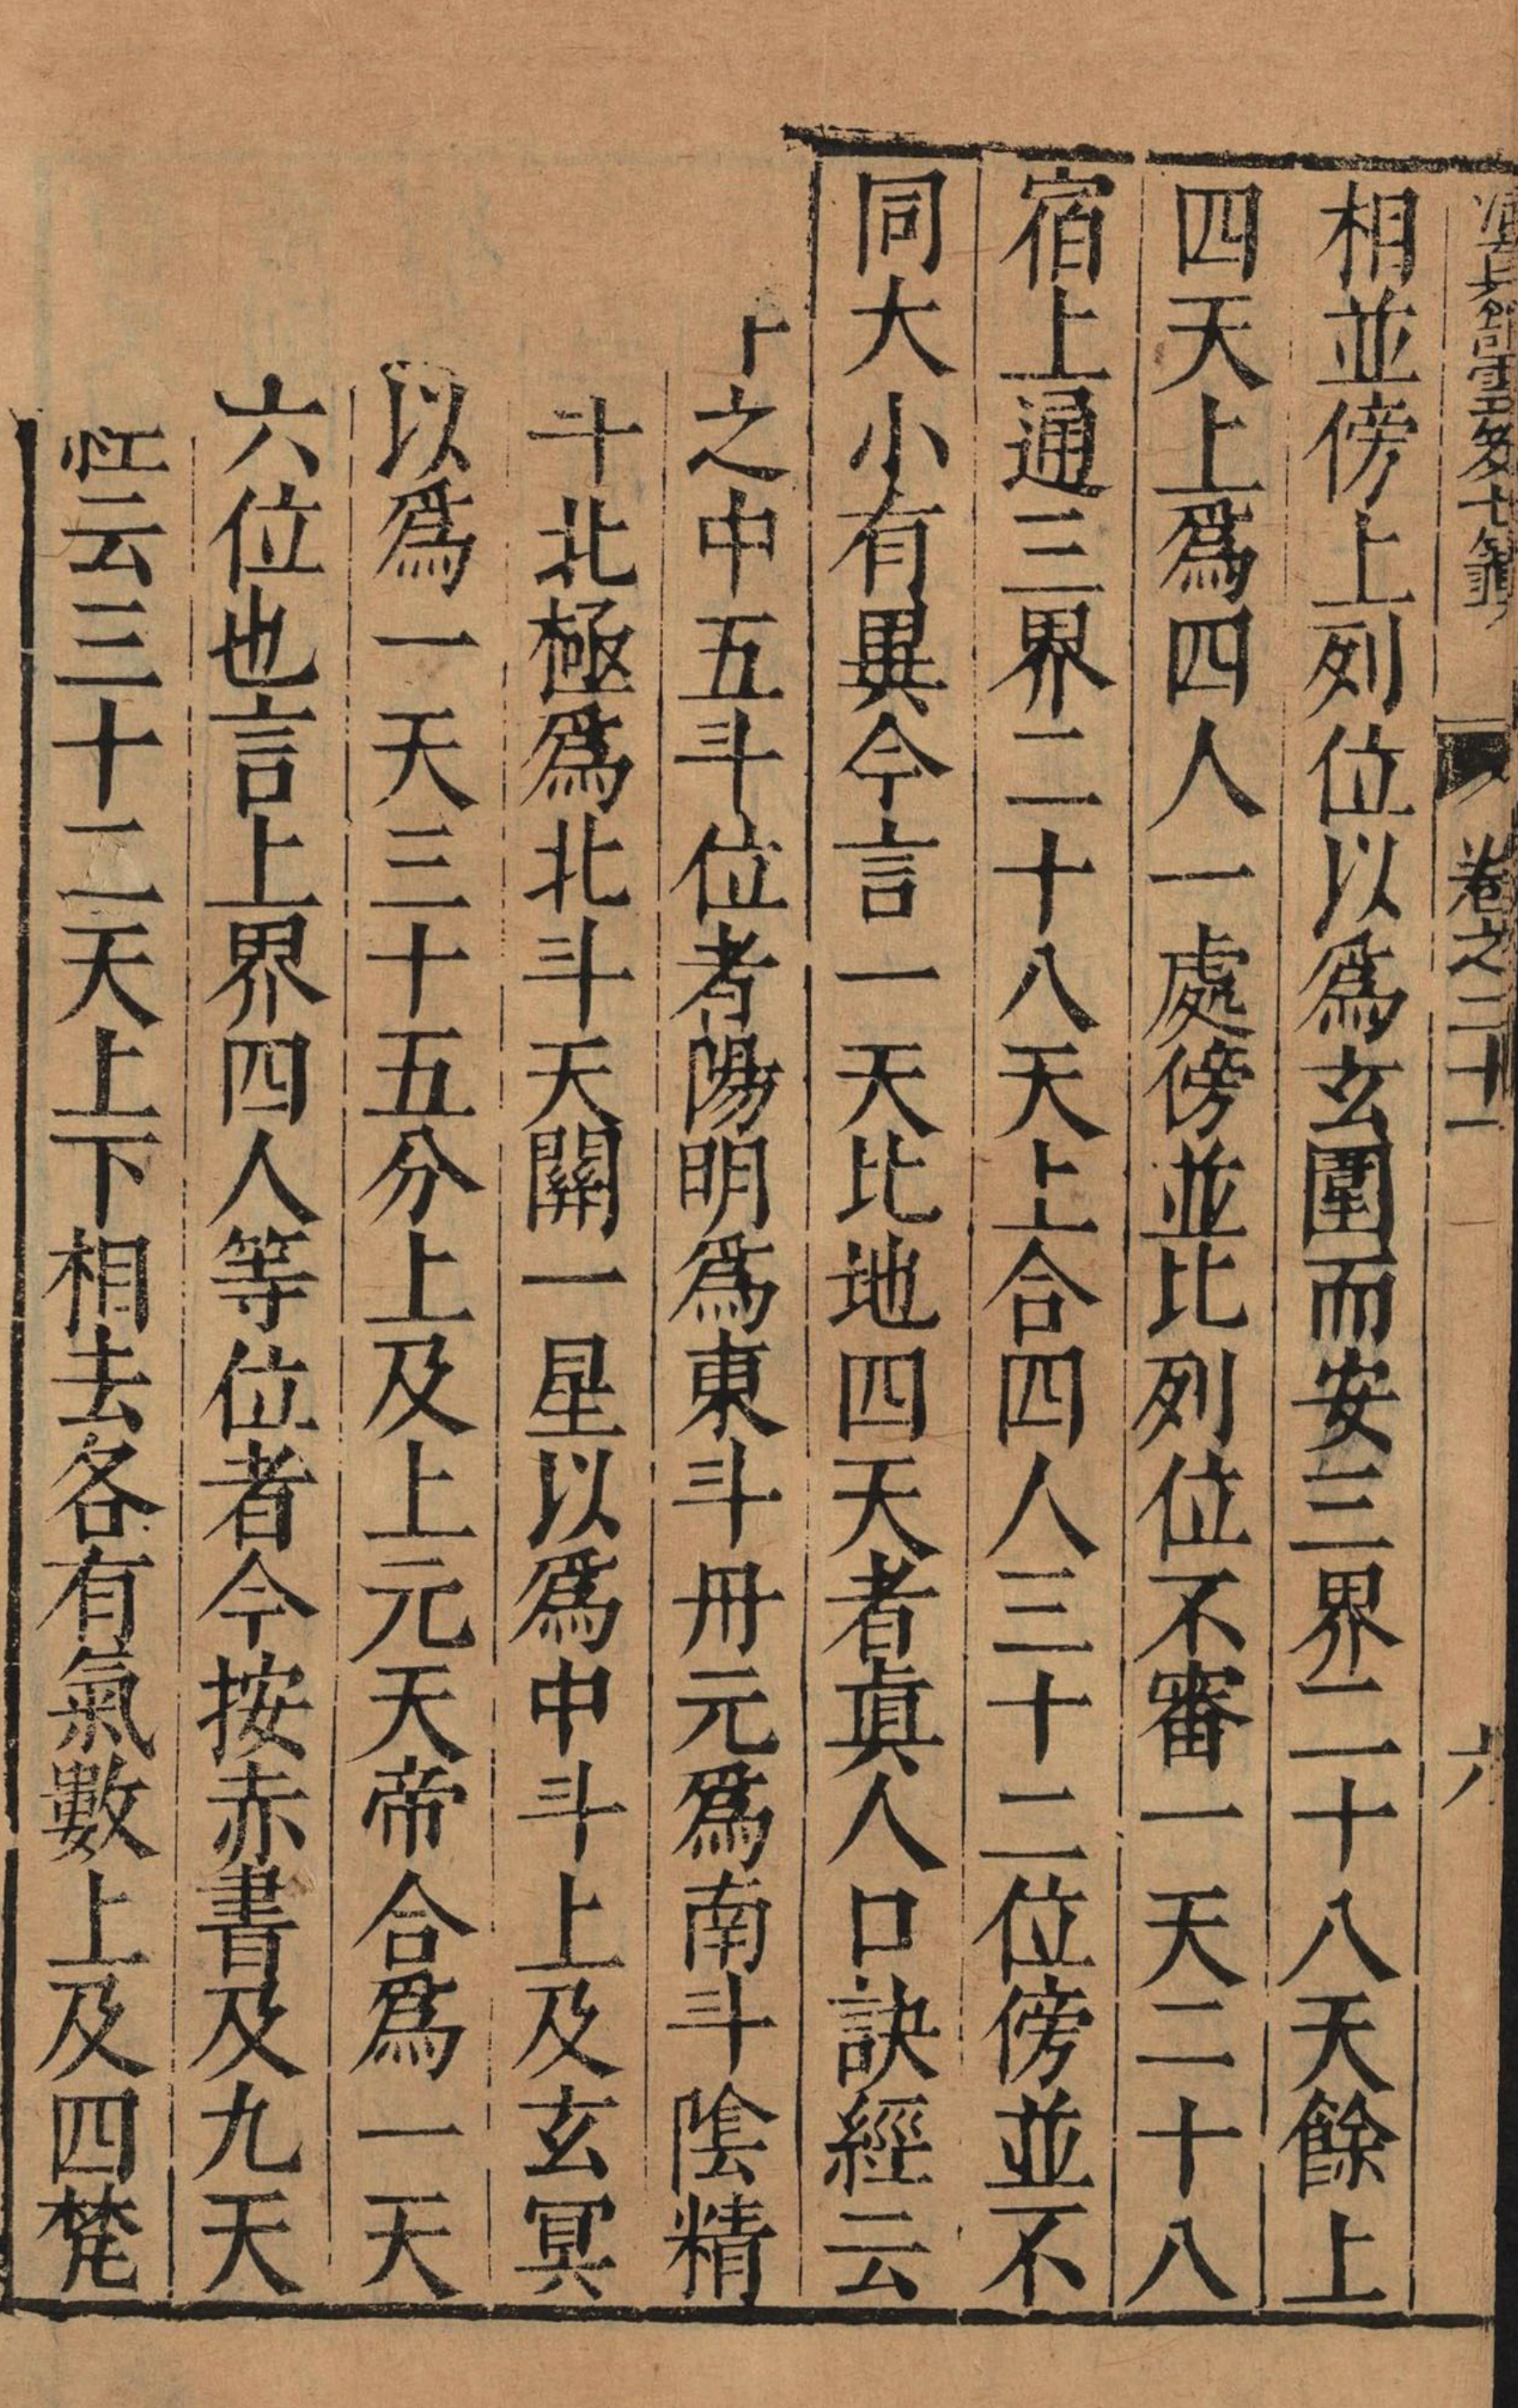 雲笈七籤 卷之二十一 六
相並傍上列位以爲玄圍而安三界二十八天餘上
四天上爲四人一處傍並比列位不審一天二十八
宿上通三界二十八天上合四人三十二位傍並不
同大小有異今言一天比地四天者眞人口訣經云
之中五斗位者陽明爲東斗丹元爲南斗陰精
斗北極爲北斗天關一星以爲中斗上及玄冥
以爲一天三十五分上及上元天帝合爲一天
六位也言上界四人等位者今按赤書及九天
云三十二天上下相去各有氣數上及四梵